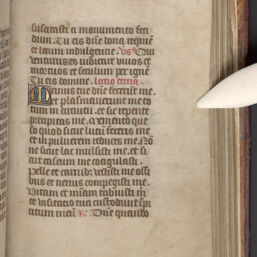 suscitasti a monumento feti
dum. Tu eis dñe dona requiē
et locum indulgentie. vs Qui
venturus es iudicare viuos et
mortuos et seculum per ignē
Tu eis domine. lectio tercia.
Manus tue dñe fecerūt me
et plasmauerunt me to
tum in circuitu. et sic repente
precipitas me. Memento que
so quod sicut lutū feceris me
et in puluerem reduces me. Nō
ne sicut lac mulsisti me. et si
cut caseum me coagulasti.
Pelle et carnibz vestisti me ossi
bus et neruis compegisti me.
Vitam et miam tribuisti m
et visitatio tua custodiuit spi
ritum meū. R. Dñe quando